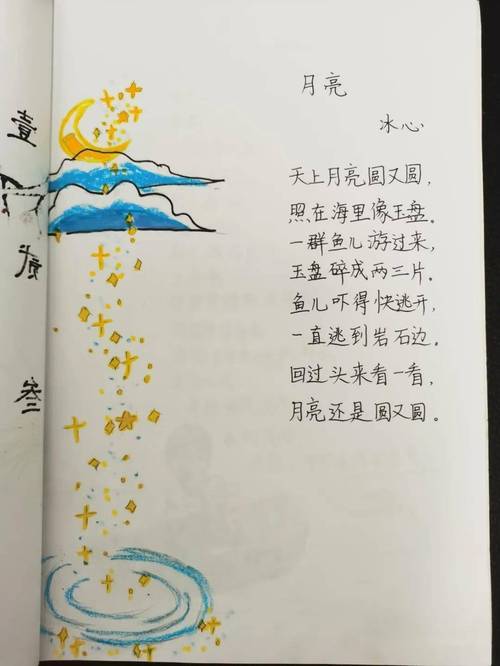 月亮
冰心
天上月亮圆又圆，
照在海里像玉盘。
一群鱼儿游过来，
玉盘碎成两三片。
鱼儿吓得快逃开，
一直逃到岩石边。
回过头来看一看，
月亮还是圆又圆。
壹
贰
叁